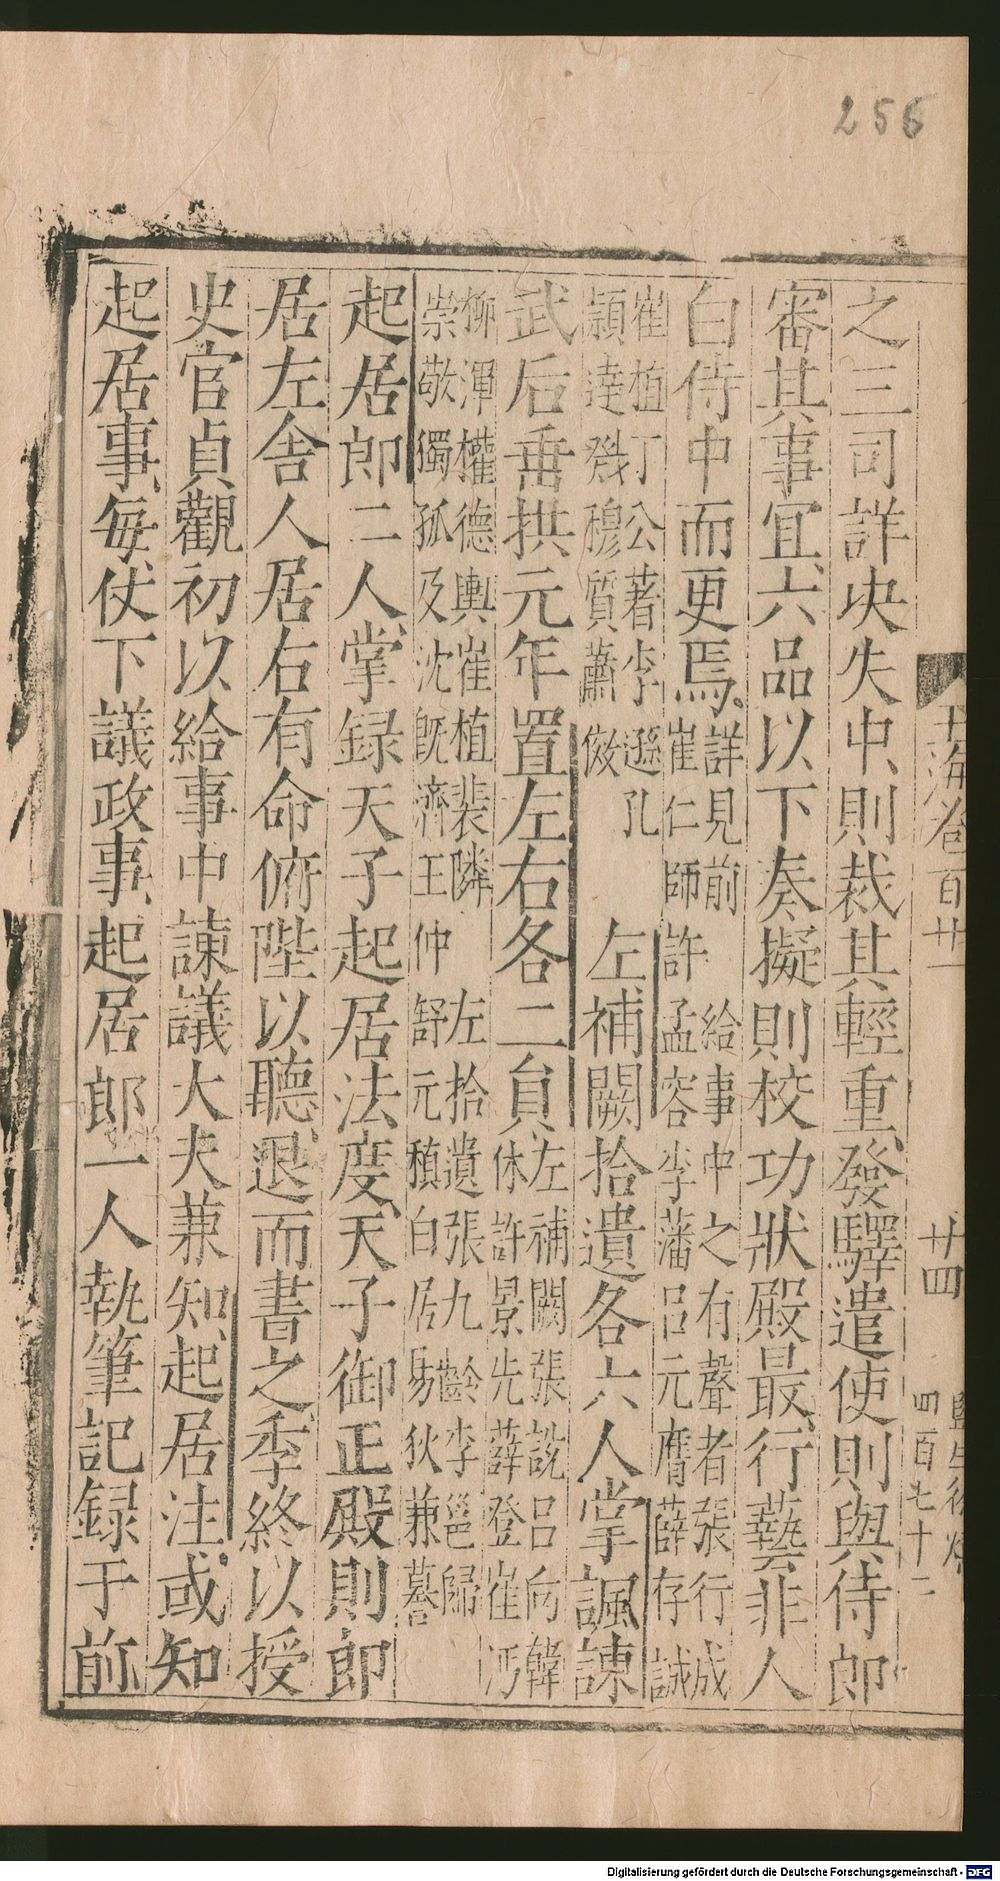 256
玉海卷百廿一
廿四
四百七十二
之三司詳决失中則裁其輕重發驛遣使則與侍郎
審其事宜六品以下奏擬則校功狀殿最行藝非人
白侍中而更焉詳見前崔仁師許孟容給事中之有聲者張行成李藩呂元膺薛存誠
崔植丁公著李遜孔穎達戣穆質蕭倣左補闕拾遺各六人掌諷諫
武后垂拱元年置左右各二員左補闕張說呂向韓休許景先薛登崔沔
柳渾權德輿崔植裴隣崇敬獨孤及沈旣濟王仲舒左拾遺張九齡李邕歸元稹白居易狄兼謩
起居郎二人掌録天子起居法度天子御正殿則郎
居左舍人居右有命俯陛以聽退而書之季終以授
史官貞觀初以給事中諫議大夫兼知起居注或知
起居事每仗下議政事起居郎一人執筆記録于前
Digitalisierung gefördert durch die Deutsche Forschungsgemeinschaft - DFG